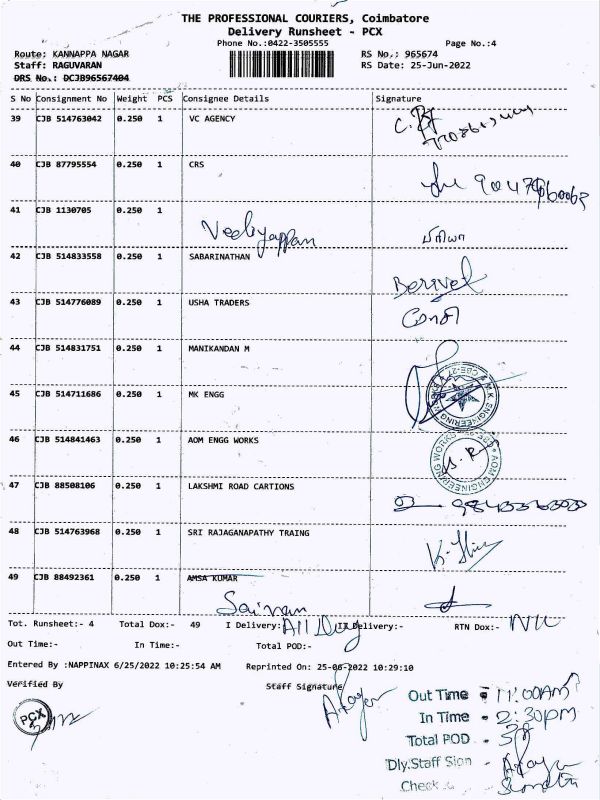 THE PROFESSIONAL COURIERS, Coimbatore
Delivery Runsheet - PCX
Phone No.:0422-3505555 Page No.:4
Route: KANNAPPA NAGAR RS No.: 965674
Staff: RAGUVARAN RS Date: 25-Jun-2022
DRS No.: DCJB96567404
S No Consignment No Weight PCS Consignee Details Signature
39 CJB 514763042 0.250 1 VC AGENCY
40 CJB 87795554 0.250 1 CRS
41 CJB 1130705 0.250 1
42 CJB 514833558 0.250 1 SABARINATHAN
43 CJB 514776089 0.250 1 USHA TRADERS
44 CJB 514831751 0.250 1 MANIKANDAN M
45 CJB 514711686 0.250 1 MK ENGG
46 CJB 514841463 0.250 1 AOM ENGG WORKS
AOM ENGINEERING WORKS
47 CJB 88508106 0.250 1 LAKSHMI ROAD CARTIONS
48 CJB 514763968 0.250 1 SRI RAJAGANAPATHY TRAING
49 CJB 88492361 0.250 1 AMSA KUMAR
Tot. Runsheet:- 4 Total Dox:- 49 I Delivery: All Dey II Delivery:- RTN Dox:- Nil
Out Time:- In Time:- Total POD:-
Entered By :NAPPINAX 6/25/2022 10:25:54 AM Reprinted On: 25-06-2022 10:29:10
Verified By Staff Signature
PCX
Out Time - 11:00AM
In Time - 2:30pm
Total POD -
Dly.Staff Sign -